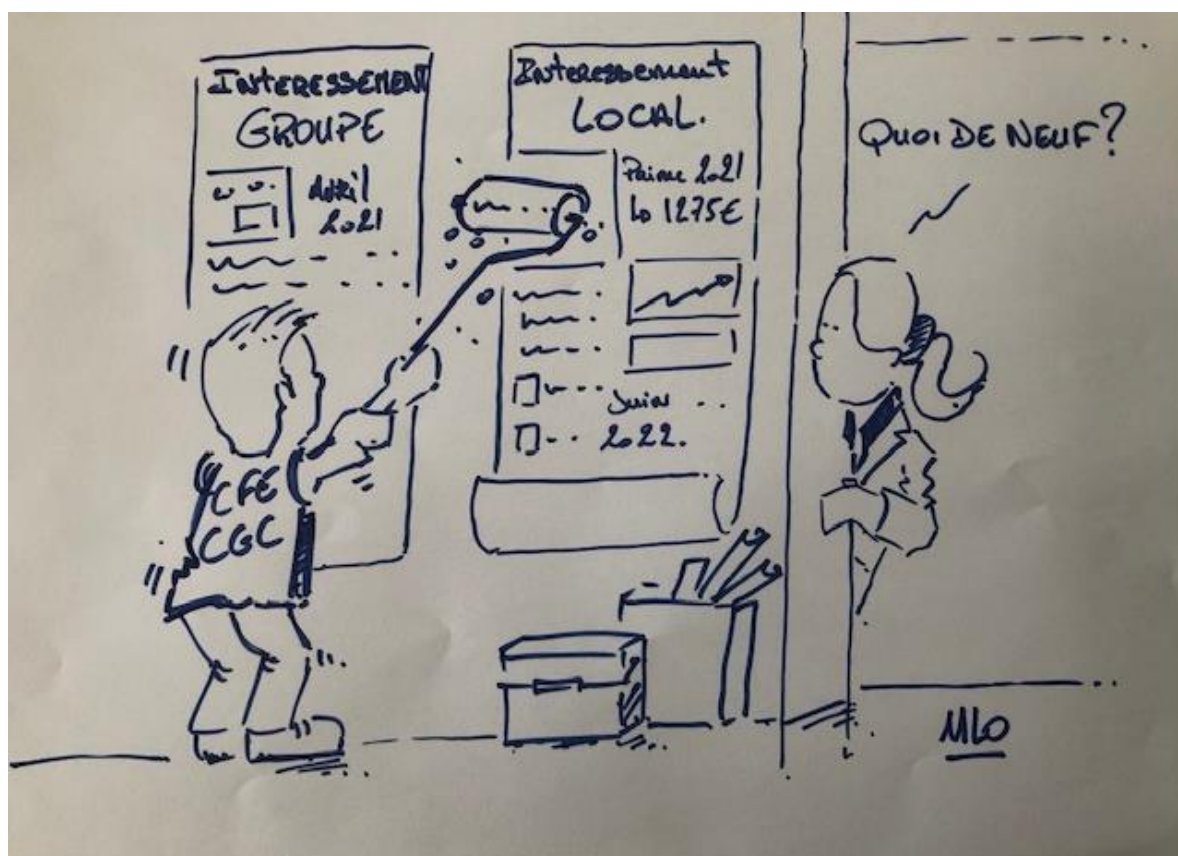 INTERESSEMENT
GROUPE
Avril
2021
Interessement
LOCAL.
Prime 2021
↳ 1275€
Juin
2022.
QUOI DE NEUF?
CFE
CGC
MLO